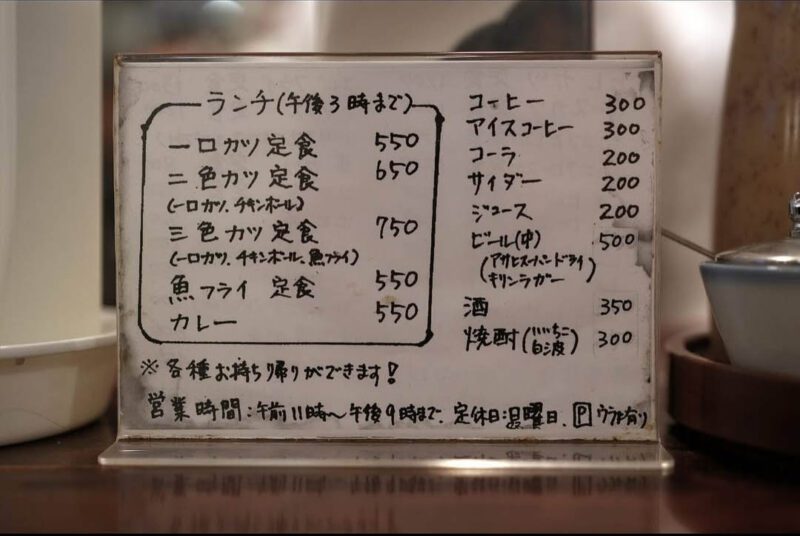 ランチ(午後3時まで)
一口カツ定食 550
二色カツ定食 650
(一口カツ、チキンボール)
三色カツ定食 750
(一口カツ、チキンボール、魚フライ)
魚フライ 定食 550
カレー 550
コーヒー 300
アイスコーヒー 300
コーラ 200
サイダー 200
ジュース 200
ビール(中) 500
(アサヒスーパードライ
キリンラガー)
酒 350
焼酎(いいちこ 300
白波)
※各種お持ち帰りができます!
営業時間:午前11時〜午後9時まで、定休日:日曜日、Pウラに有り